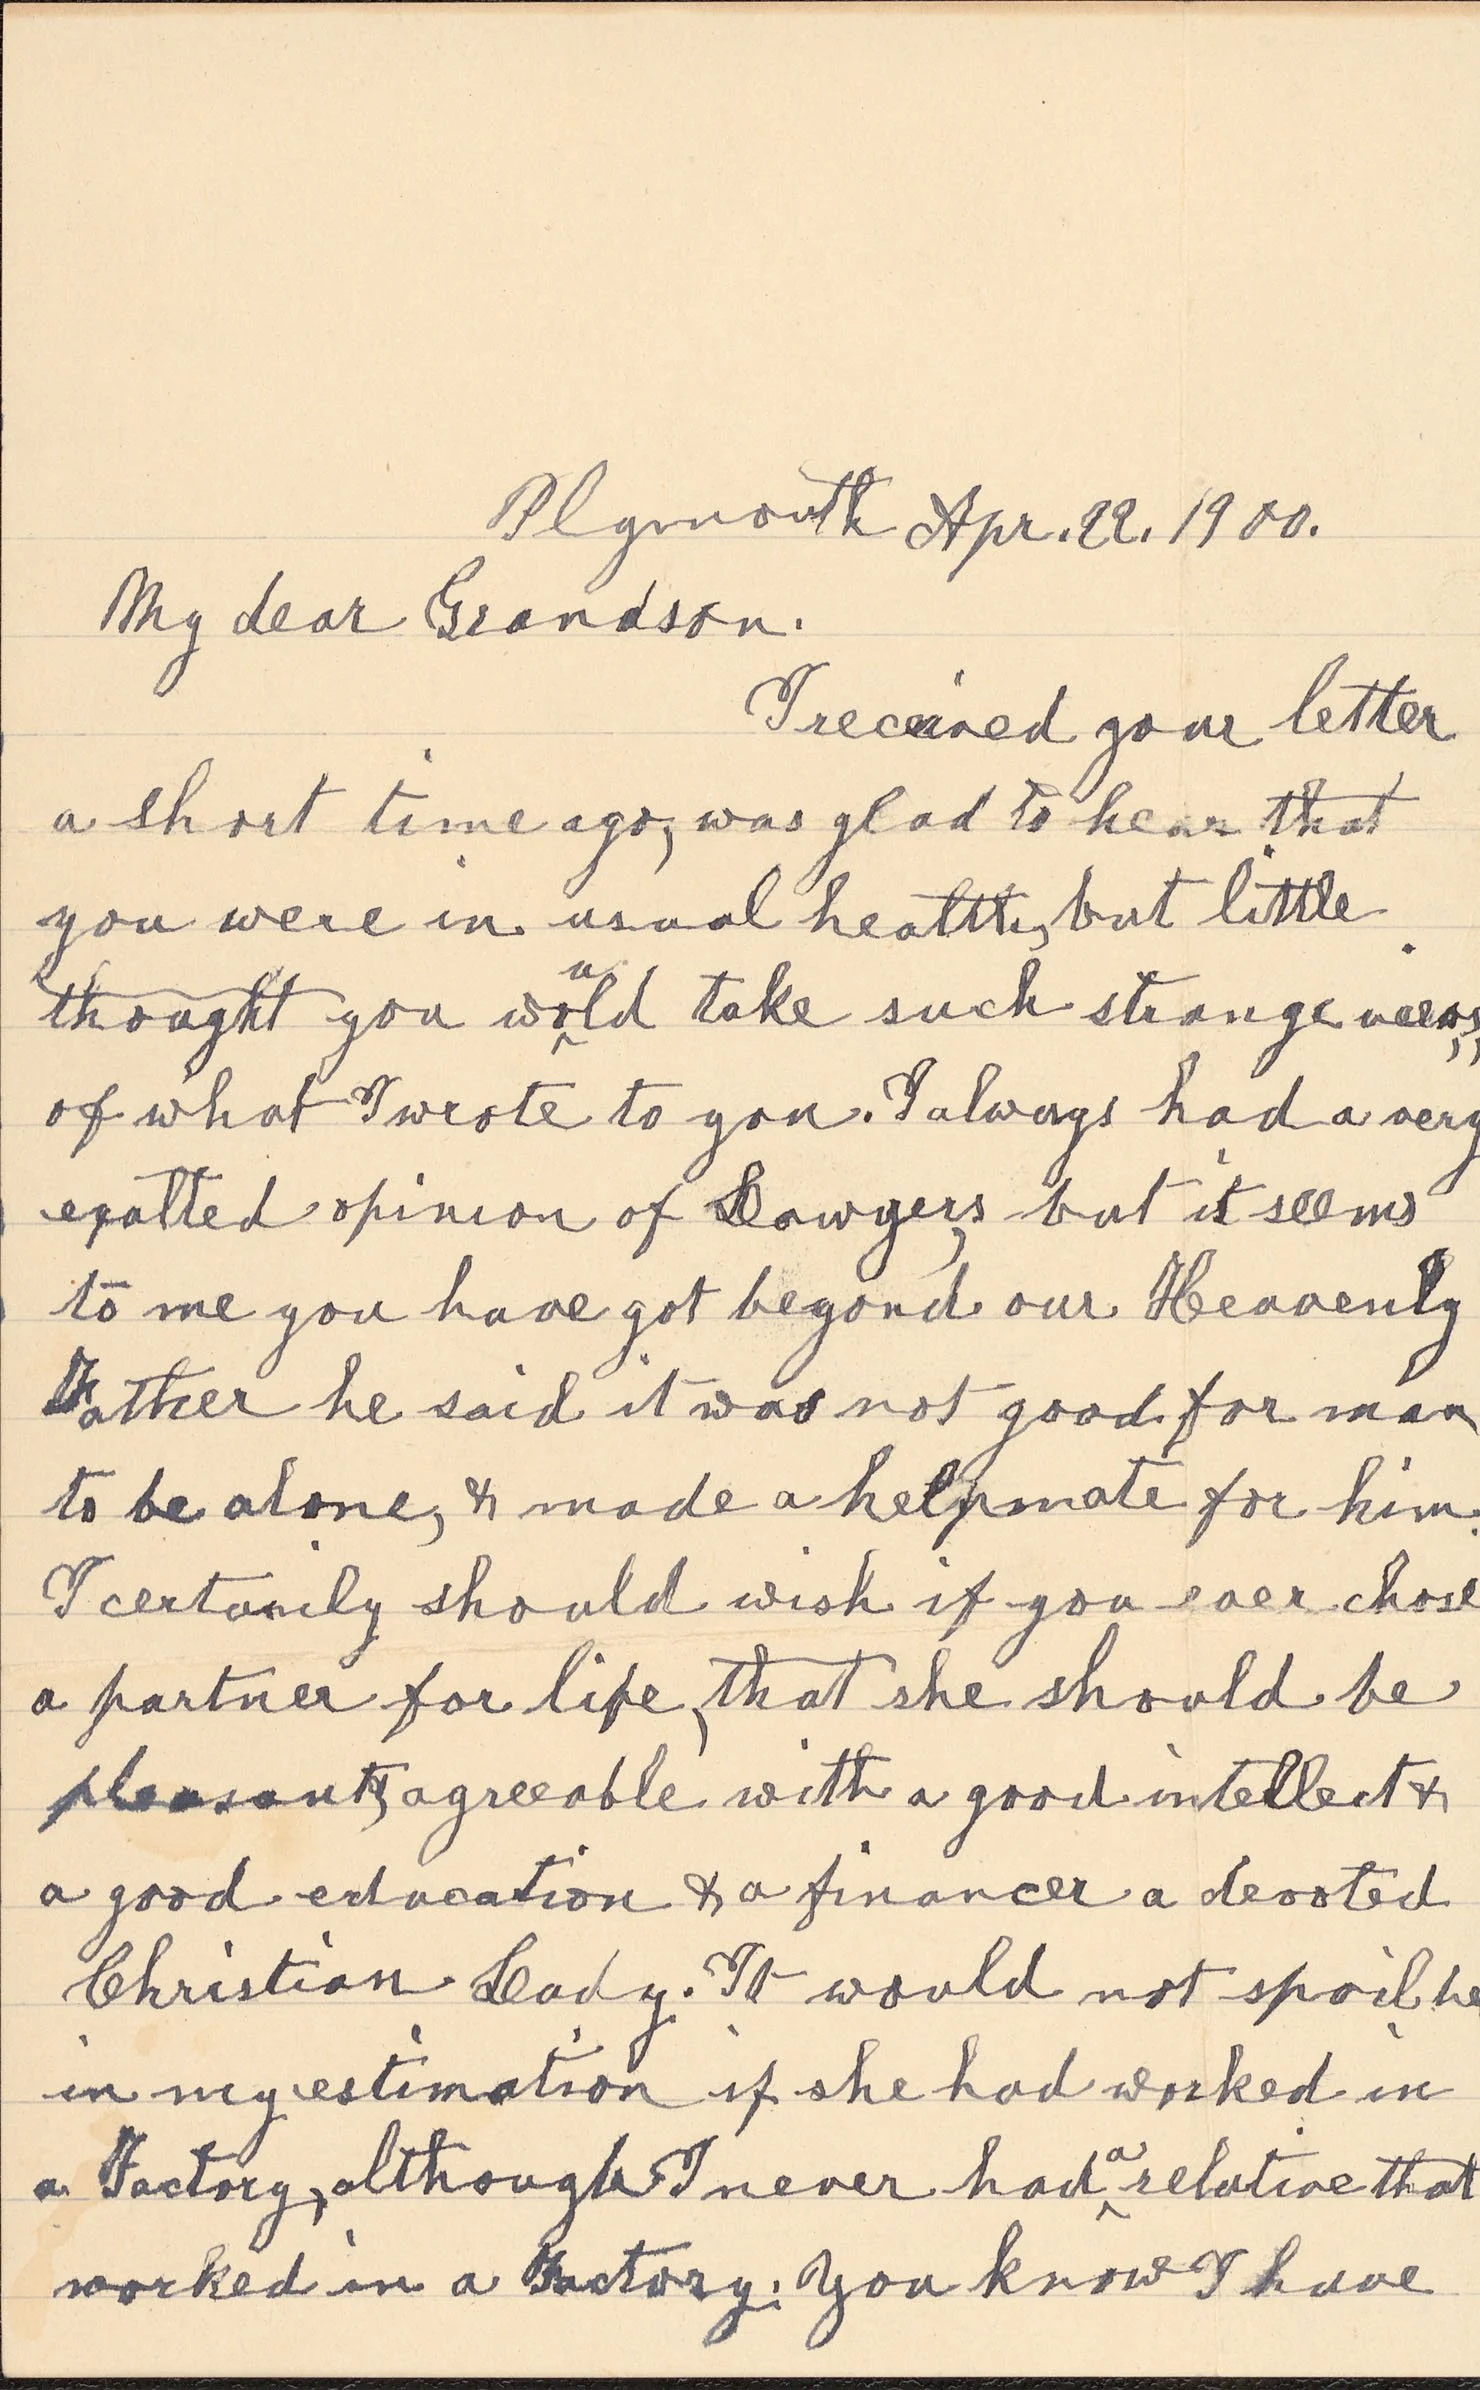 Plymouth Apr. 22. 1900.
My dear Grandson.
I received your letter
a short time ago, was glad to hear that
you were in usual health, but little
thought you would take such strange
of what I wrote to you. I always had a very
exalted opinion of Lawyers, but it seems
to me you have got beyond our Heavenly
Father he said it was not good for man
to be alone, & made a helpmate for him.
I certainly should wish if you ever chose
a partner for life, that she should be
pleasant, agreeable with a good intellect &
a good education & a financer a devoted
Christian Lady. It would not spoil he
in my estimation if she had worked in
a Factory, although I never had a relative that
worked in a Factory; You know I have